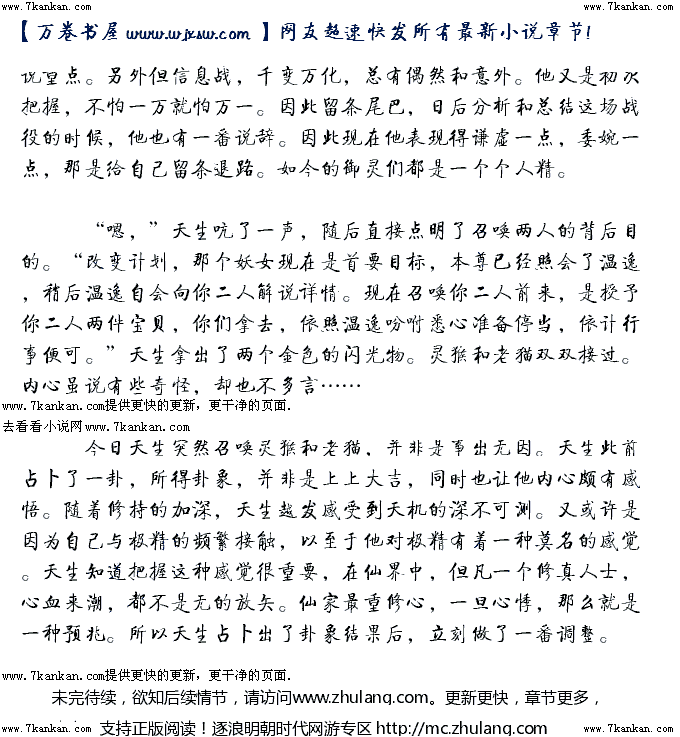 www.7kankan.com www.7kankan.com
【万卷书屋 www.wjxsw.com 】网友超速快发所有最新小说章节!
说望点。另外但信息战，千变万化，总有偶然和意外。他又是初次
把握，不怕一万就怕万一。因此留条尾巴，日后分析和总结这场战
役的时候，他也有一番说辞。因此现在他表现得谦虚一点，委婉一
点，那是给自己留条退路。如今的御灵们都是一个个人精。
“嗯，”天生吭了一声，随后直接点明了召唤两人的背后目
的。“改变计划，那个妖女现在是首要目标，本尊已经照会了温逸
，稍后温逸自会向你二人解说详情。现在召唤你二人前来，是授予
你二人两件宝贝，你们拿去，依照温逸吩咐悉心准备停当，依计行
事便可。”天生拿出了两个金色的闪光物。灵猴和老猫双双接过。
内心虽说有些奇怪，却也不多言……
www.7kankan.com提供更快的更新，更干净的页面.
去看看小说网www.7kankan.com
今日天生突然召唤灵猴和老猫，并非是事出无因。天生此前
占卜了一卦，所得卦象，并非是上上大吉，同时也让他内心颇有感
悟。随着修持的加深，天生越发感受到天机的深不可测。又或许是
因为自己与极精的频繁接触，以至于他对极精有着一种莫名的感觉
。天生知道把握这种感觉很重要，在仙界中，但凡一个修真人士，
心血来潮，都不是无的放矢。仙家最重修心，一旦心悸，那么就是
一种预兆。所以天生占卜出了卦象结果后，立刻做了一番调整。
www.7kankan.com提供更快的更新，更干净的页面.
未完待续，欲知后续情节，请访问www.zhulang.com。更新更快，章节更多，
www.7kankan.com 支持正版阅读！逐浪明朝时代网游专区 http://mc.zhulang.com www.7kankan.com